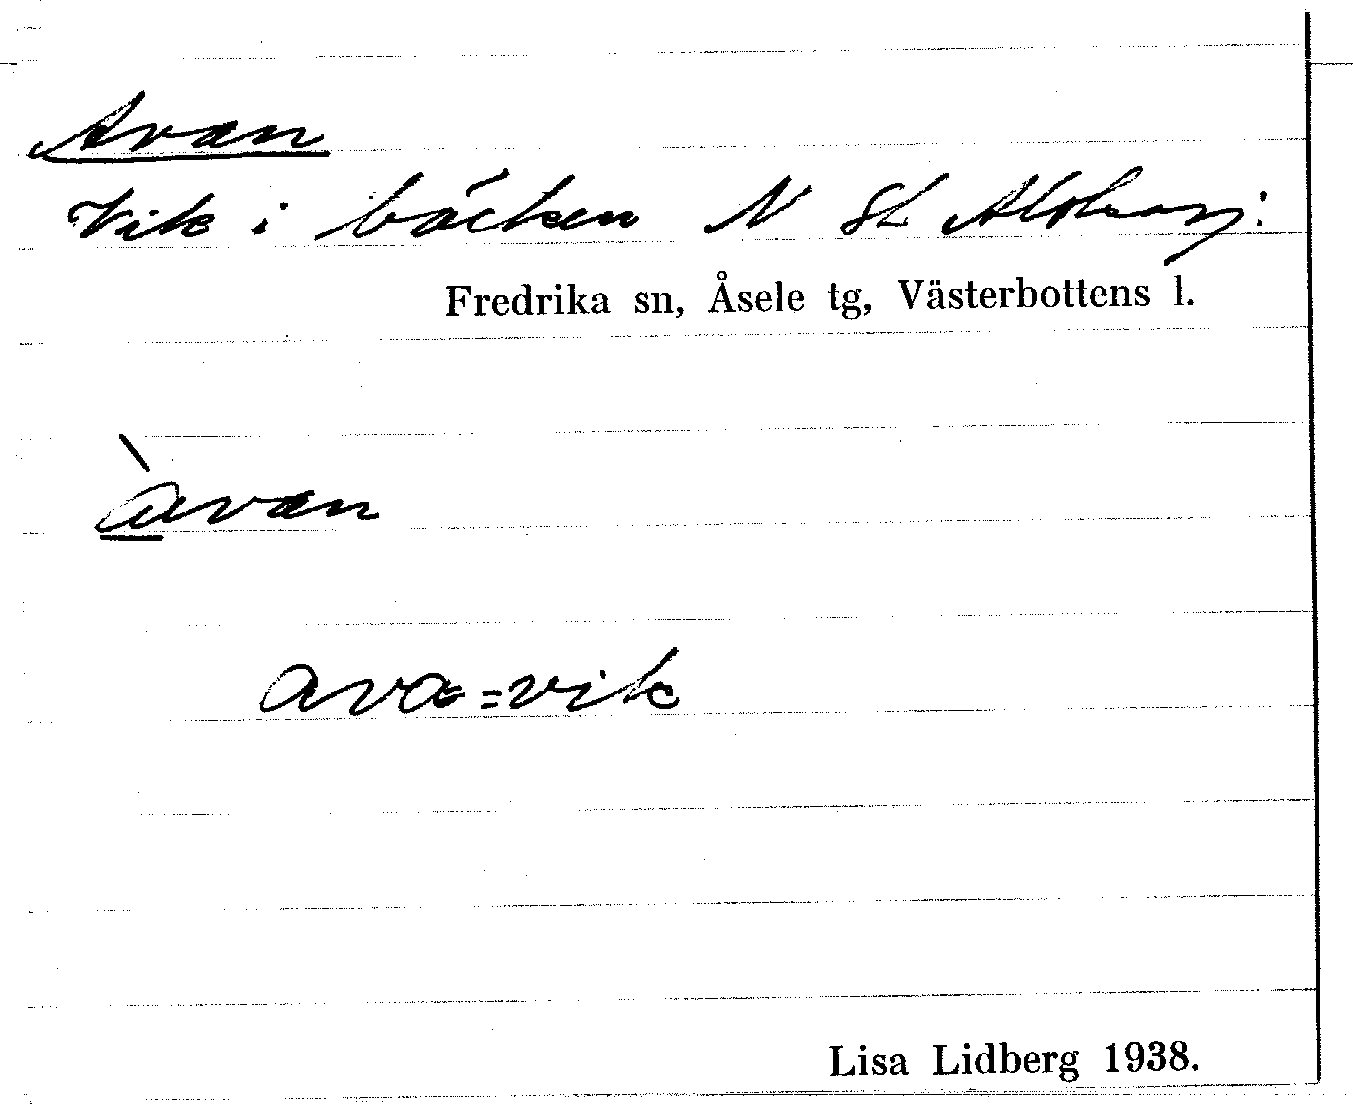 Avan
Vik i bäcken N St
Fredrika sn, Åsele tg, Västerbottens l.
àvan
ava=vik
Lisa Lidberg 1938.